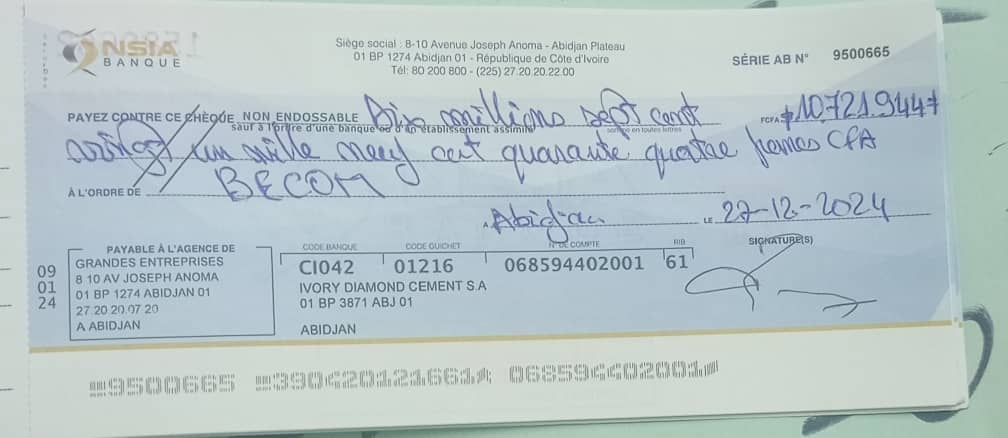 NSIA
BANQUE
Siège social : 8-10 Avenue Joseph Anoma - Abidjan Plateau
01 BP 1274 Abidjan 01 - République de Côte d'Ivoire
Tél: 80 200 800 - (225) 27.20.20.22.00
SÉRIE AB N° 9500665
PAYEZ CONTRE CE CHÈQUE NON ENDOSSABLE Dix millions sept cent FCFA #10.721.944#
sauf à l'ordre d'une banque ou d'un établissement assimilé somme en toutes lettres
vingt un mille neuf cent quarante quatre francs CFA
À L'ORDRE DE BECOM
A Abidjan LE 27-12-2024
PAYABLE À L'AGENCE DE
GRANDES ENTREPRISES
8 10 AV JOSEPH ANOMA
01 BP 1274 ABIDJAN 01
27.20.20.07.20
A ABIDJAN
09
01
24
CODE BANQUE CODE GUICHET N° DE COMPTE RIB
CI042 01216 068594402001 61
IVORY DIAMOND CEMENT S.A
01 BP 3871 ABJ 01
ABIDJAN
SIGNATURE(S)
9500665 390420121661 068594402001